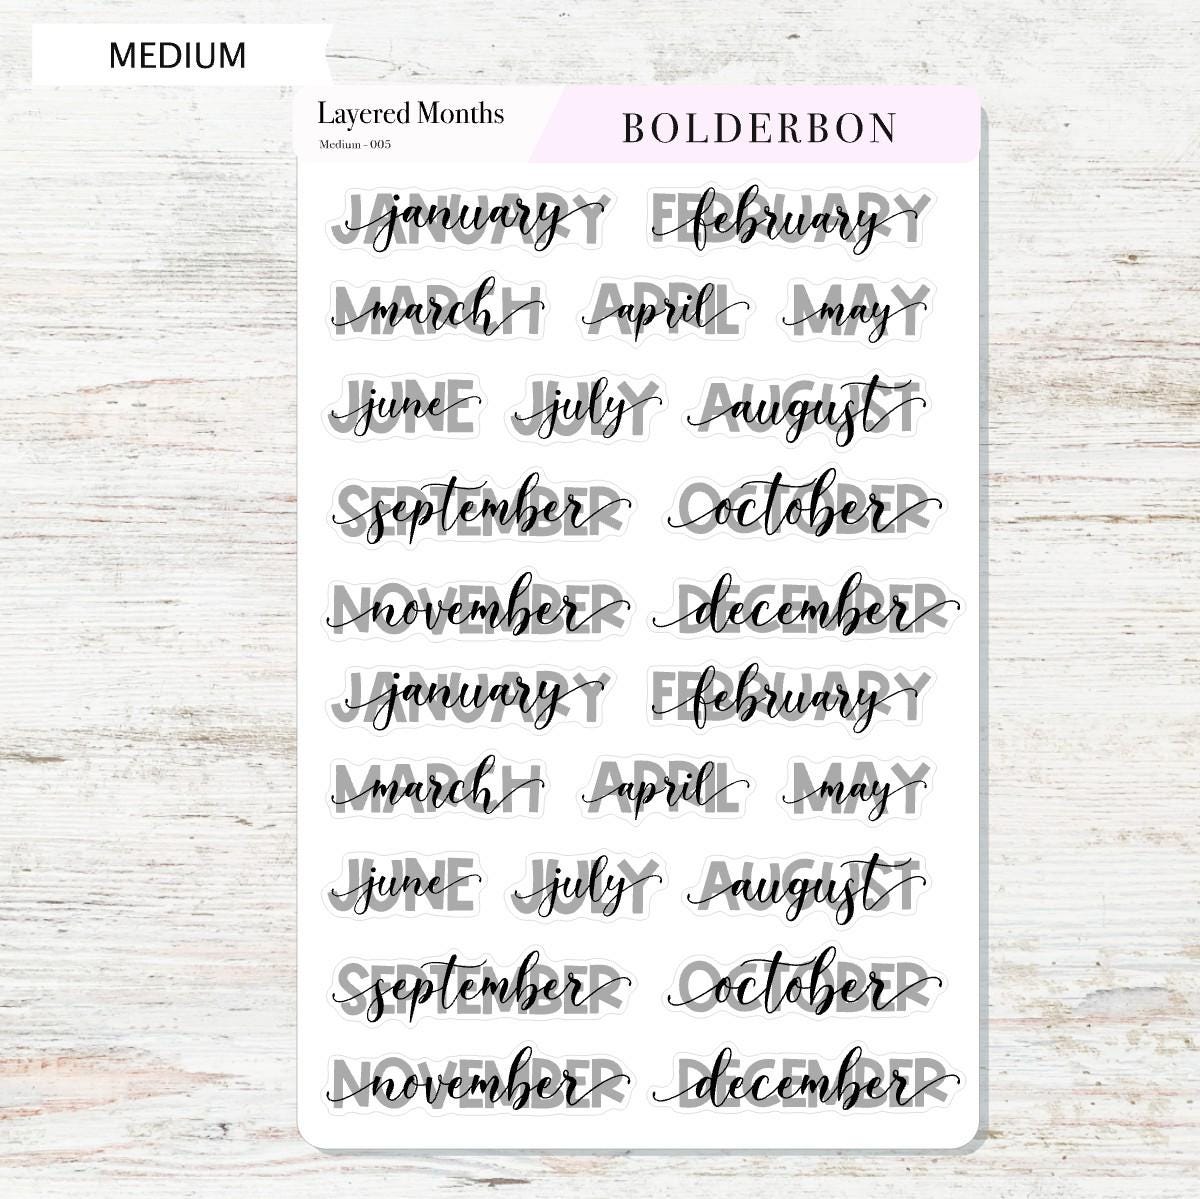 MEDIUM
Layered Months
Medium - 005
BOLDERBON
JANUARY january FEBRUARY february
MARCH march APRIL april MAY may
JUNE june JULY july AUGUST august
SEPTEMBER september OCTOBER october
NOVEMBER november DECEMBER december
JANUARY january FEBRUARY february
MARCH march APRIL april MAY may
JUNE june JULY july AUGUST august
SEPTEMBER september OCTOBER october
NOVEMBER november DECEMBER december